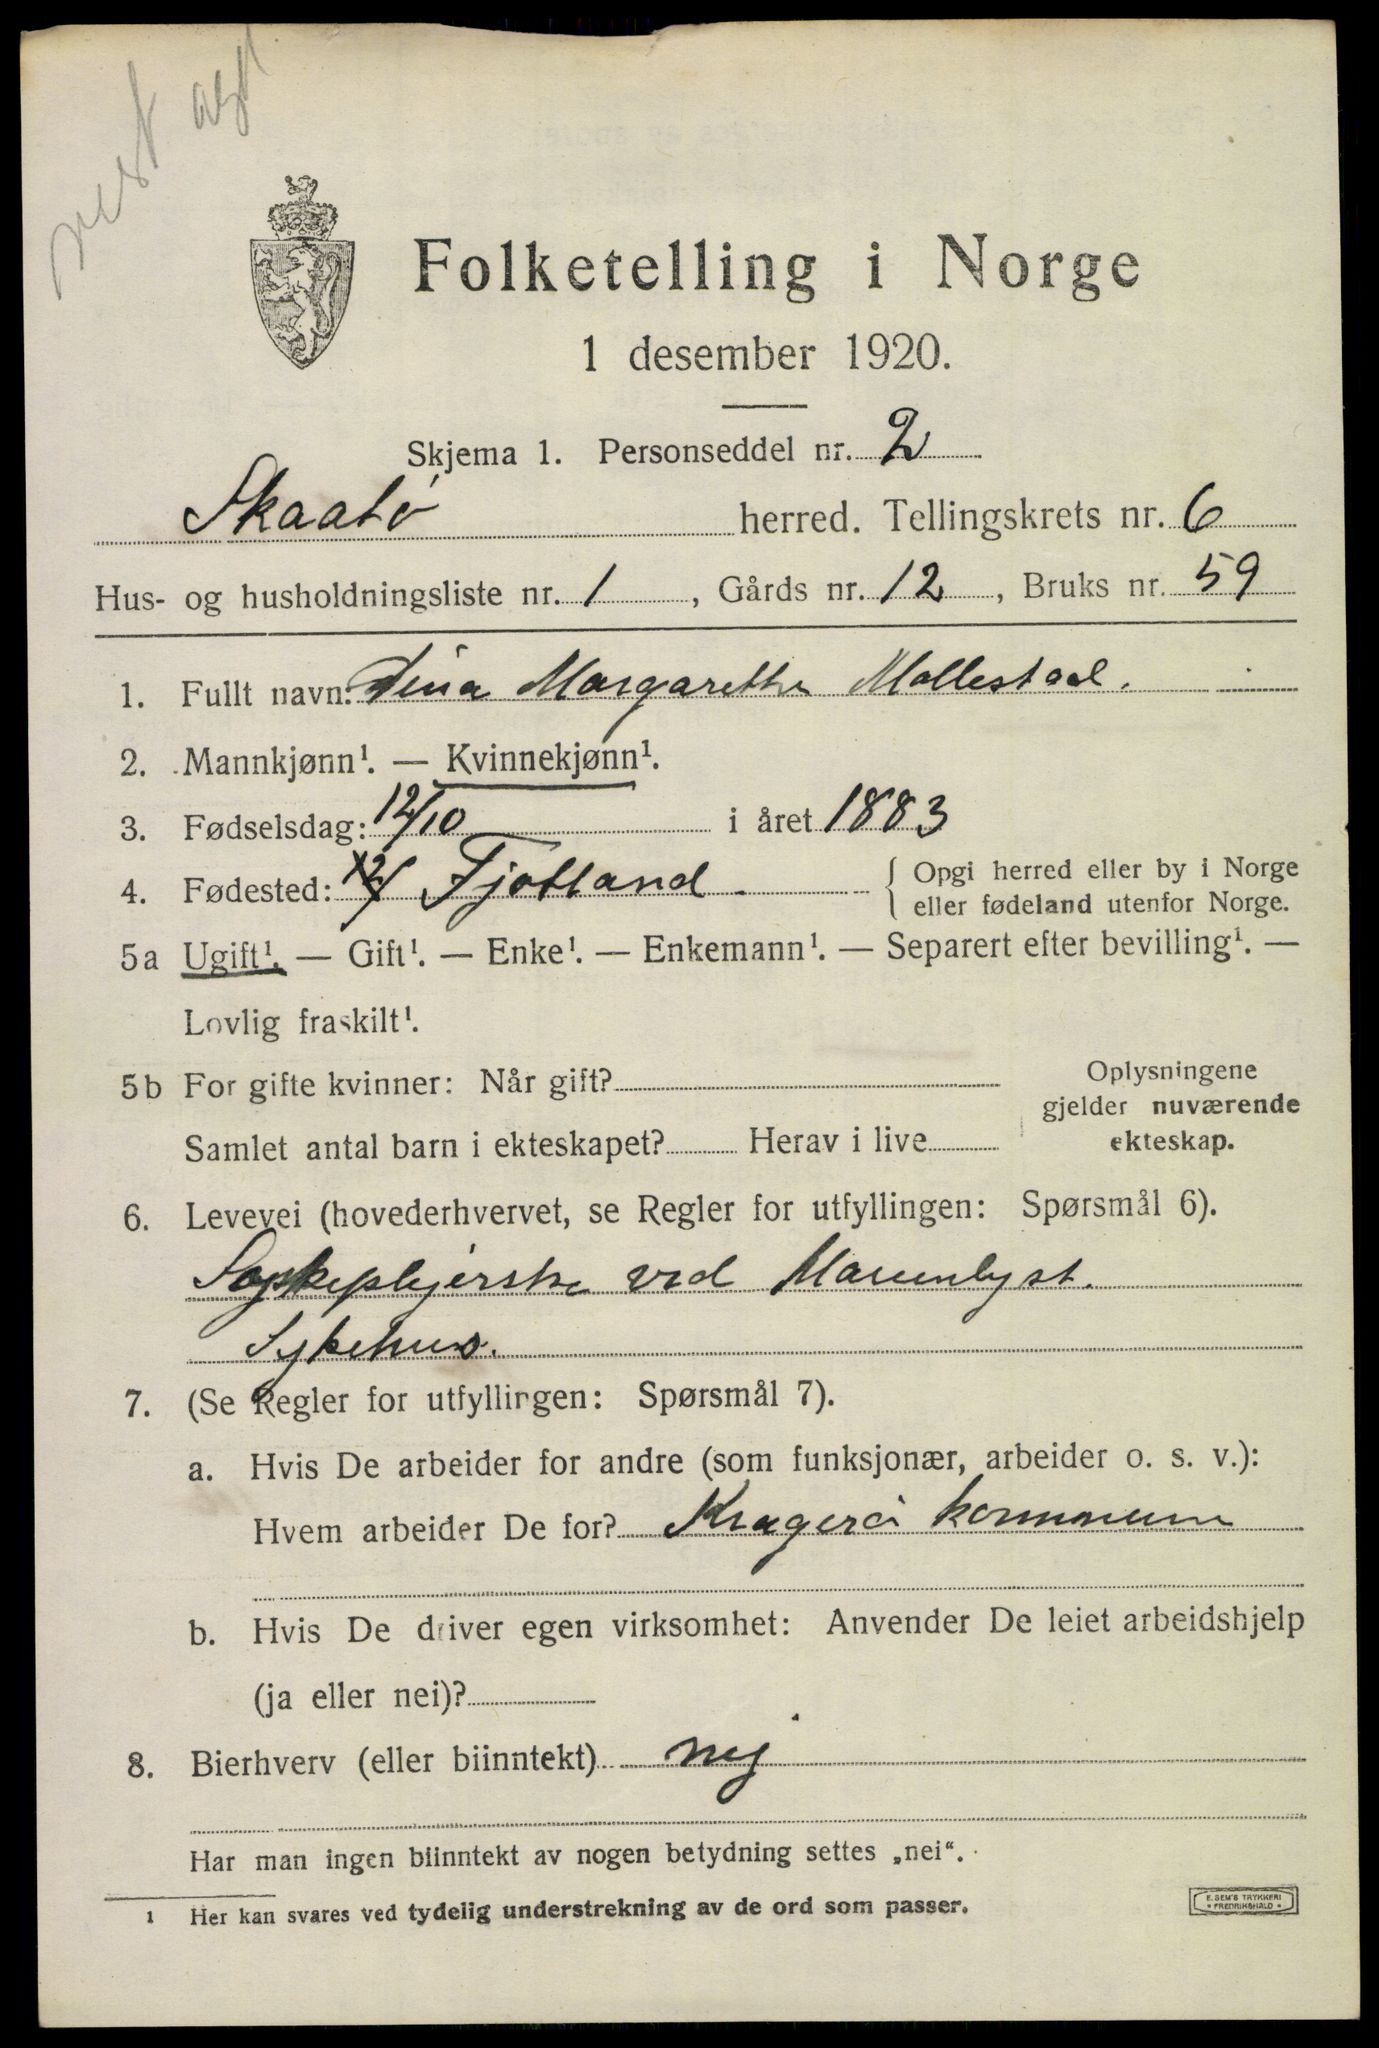 Folketelling i Norge
1 desember 1920.
Skjema 1. Personseddel nr. 2
Skaatø herred. Tellingskrets nr. 6
Hus- og husholdningsliste nr. 1, Gårds nr. 12, Bruks nr. 59
1. Fullt navn: Margarethe Mollestad.
2. Mannkjønn¹. — Kvinnekjønn¹.
3. Fødselsdag: 12/10 i året 1883
4. Fødested: Fjotland. { Opgi herred eller by i Norge
eller fødeland utenfor Norge.
5a Ugift¹. — Gift¹. — Enke¹. — Enkemann¹. — Separert efter bevilling¹. —
Lovlig fraskilt¹.
5b For gifte kvinner: Når gift?
Samlet antal barn i ekteskapet? Herav i live
Oplysningene
gjelder nuværende
ekteskap.
6. Levevei (hovederhvervet, se Regler for utfyllingen: Spørsmål 6).
ved Marienlyst
Sykehus.
7. (Se Regler for utfyllingen: Spørsmål 7).
a. Hvis De arbeider for andre (som funksjonær, arbeider o. s. v.):
Hvem arbeider De for? Kragerø kommune
b. Hvis De driver egen virksomhet: Anvender De leiet arbeidshjelp
(ja eller nei)?
8. Bierhverv (eller biinntekt) nej
Har man ingen biinntekt av nogen betydning settes „nei“.
1 Her kan svares ved tydelig understrekning av de ord som passer.
E. SEM'S TRYKKERI
• FREDRIKSHALD •